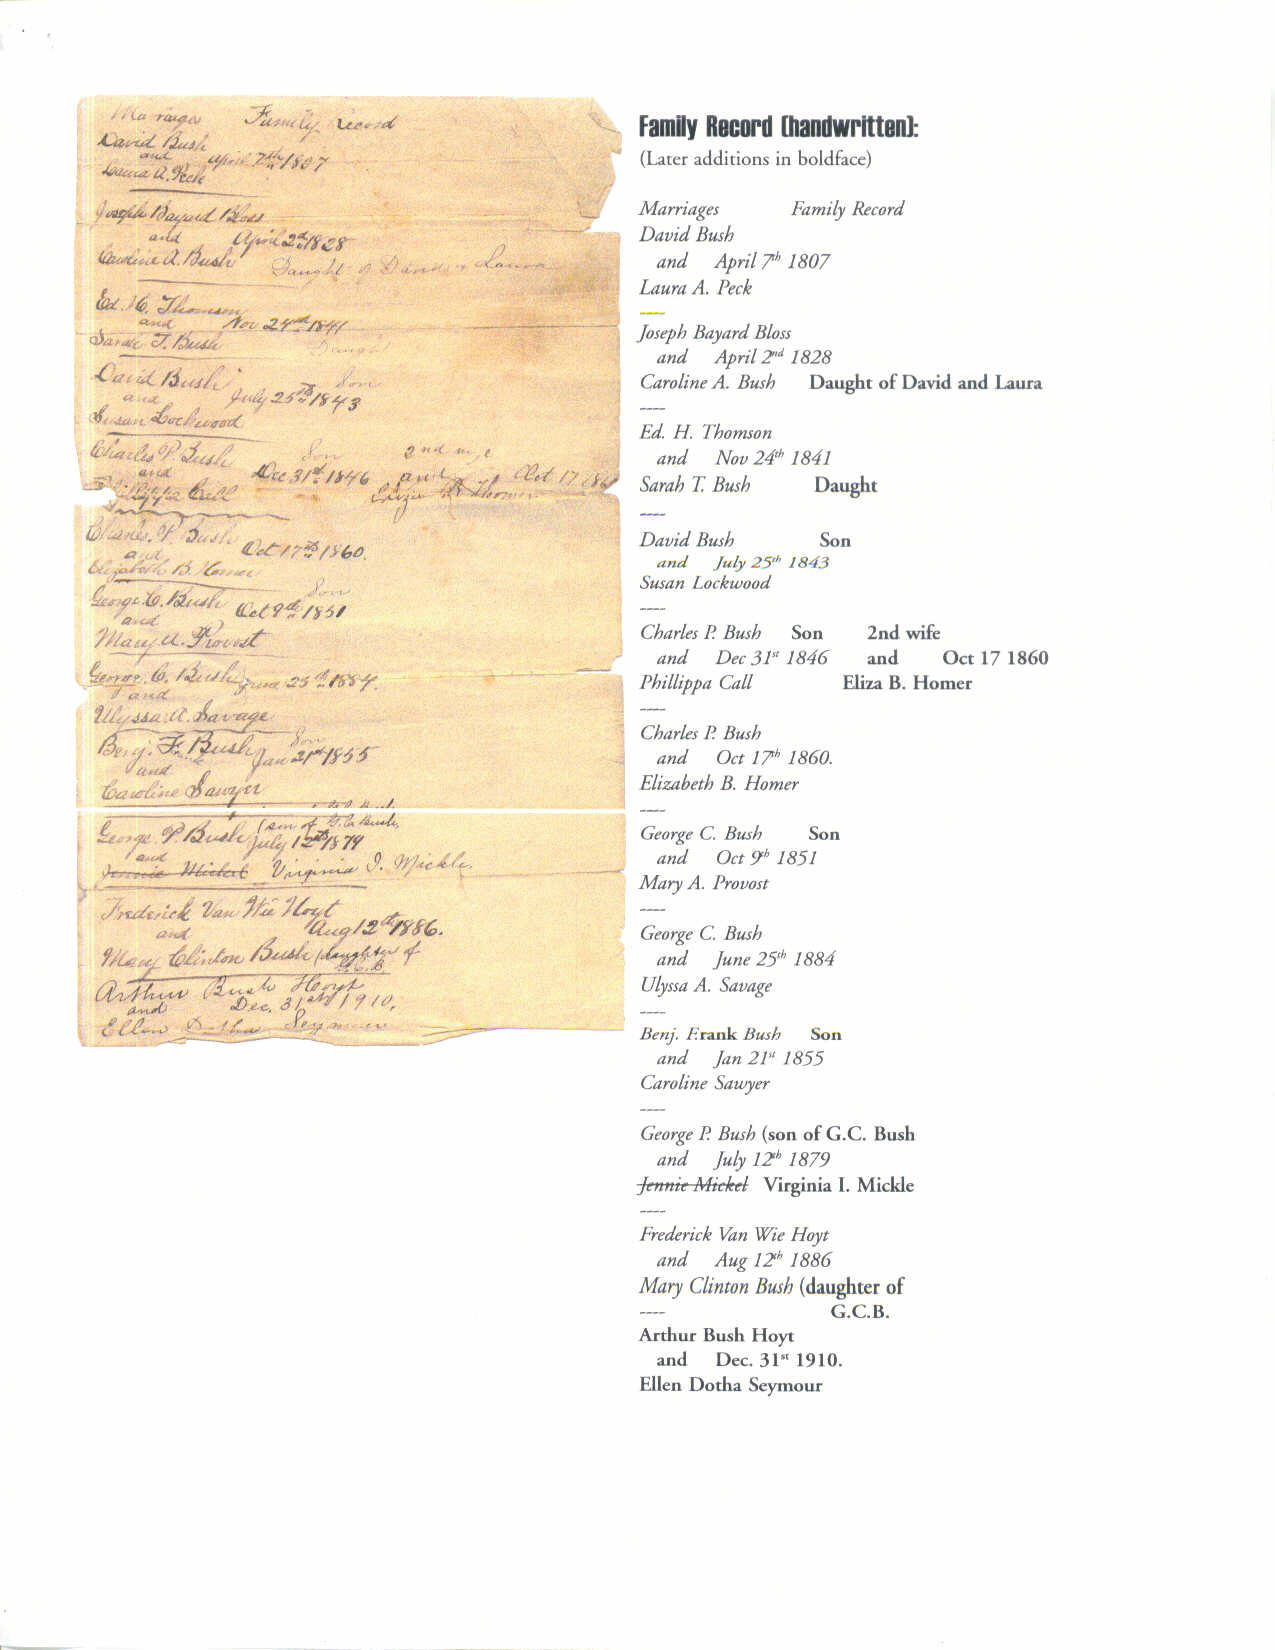 Marriages Family Record
David Bush
and April 7th 1807
Laura A. Peck
Joseph Bayard Bloss
and April 2d 1828
Caroline A. Bush Daught of David & Laura
Ed. H. Thomson
and Nov 24th 1841
Sarah T. Bush Daught
David Bush Son
and July 25th 1843
Susan Lockwood
Charles P. Bush Son 2nd
and Dec 31st 1846 and Oct 17 186
Call Eliza B
Charles. P. Bush
and Oct 17th 1860.
Elizabeth B. Homer
George. C. Bush Son
and Oct 9th 1851
Mary A. Provost
George. C. Bush June 25th 1884.
and
Ulyssa. A. Savage
Benj. F. Bush Son
Frank
and Jan 21st 1855
Caroline Sawyer
George. P. Bush (son of G. C. Bush,
and July 12th 1879
Jennie Mickel Virginia I. Mickle.
Frederick Van Wie Hoyt
and Aug 12th 1886.
Mary Clinton Bush (daughter of
G. C. B.
Arthur Bush Hoyt
and Dec. 31st 1910.
Ellen Dotha Seymour
Family Record (handwritten):
(Later additions in boldface)
Marriages Family Record
David Bush
and April 7th 1807
Laura A. Peck
----
Joseph Bayard Bloss
and April 2nd 1828
Caroline A. Bush Daught of David and Laura
----
Ed. H. Thomson
and Nov 24th 1841
Sarah T. Bush Daught
----
David Bush Son
and July 25th 1843
Susan Lockwood
----
Charles P. Bush Son 2nd wife
and Dec 31st 1846 and Oct 17 1860
Phillippa Call Eliza B. Homer
----
Charles P. Bush
and Oct 17th 1860.
Elizabeth B. Homer
----
George C. Bush Son
and Oct 9th 1851
Mary A. Provost
----
George C. Bush
and June 25th 1884
Ulyssa A. Savage
----
Benj. F.rank Bush Son
and Jan 21st 1855
Caroline Sawyer
----
George P. Bush (son of G.C. Bush
and July 12th 1879
Jennie Mickel Virginia I. Mickle
----
Frederick Van Wie Hoyt
and Aug 12th 1886
Mary Clinton Bush (daughter of
---- G.C.B.
Arthur Bush Hoyt
and Dec. 31st 1910.
Ellen Dotha Seymour